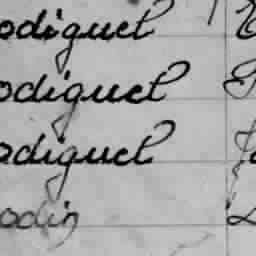 odiguel
odiguel
odiguel
odin